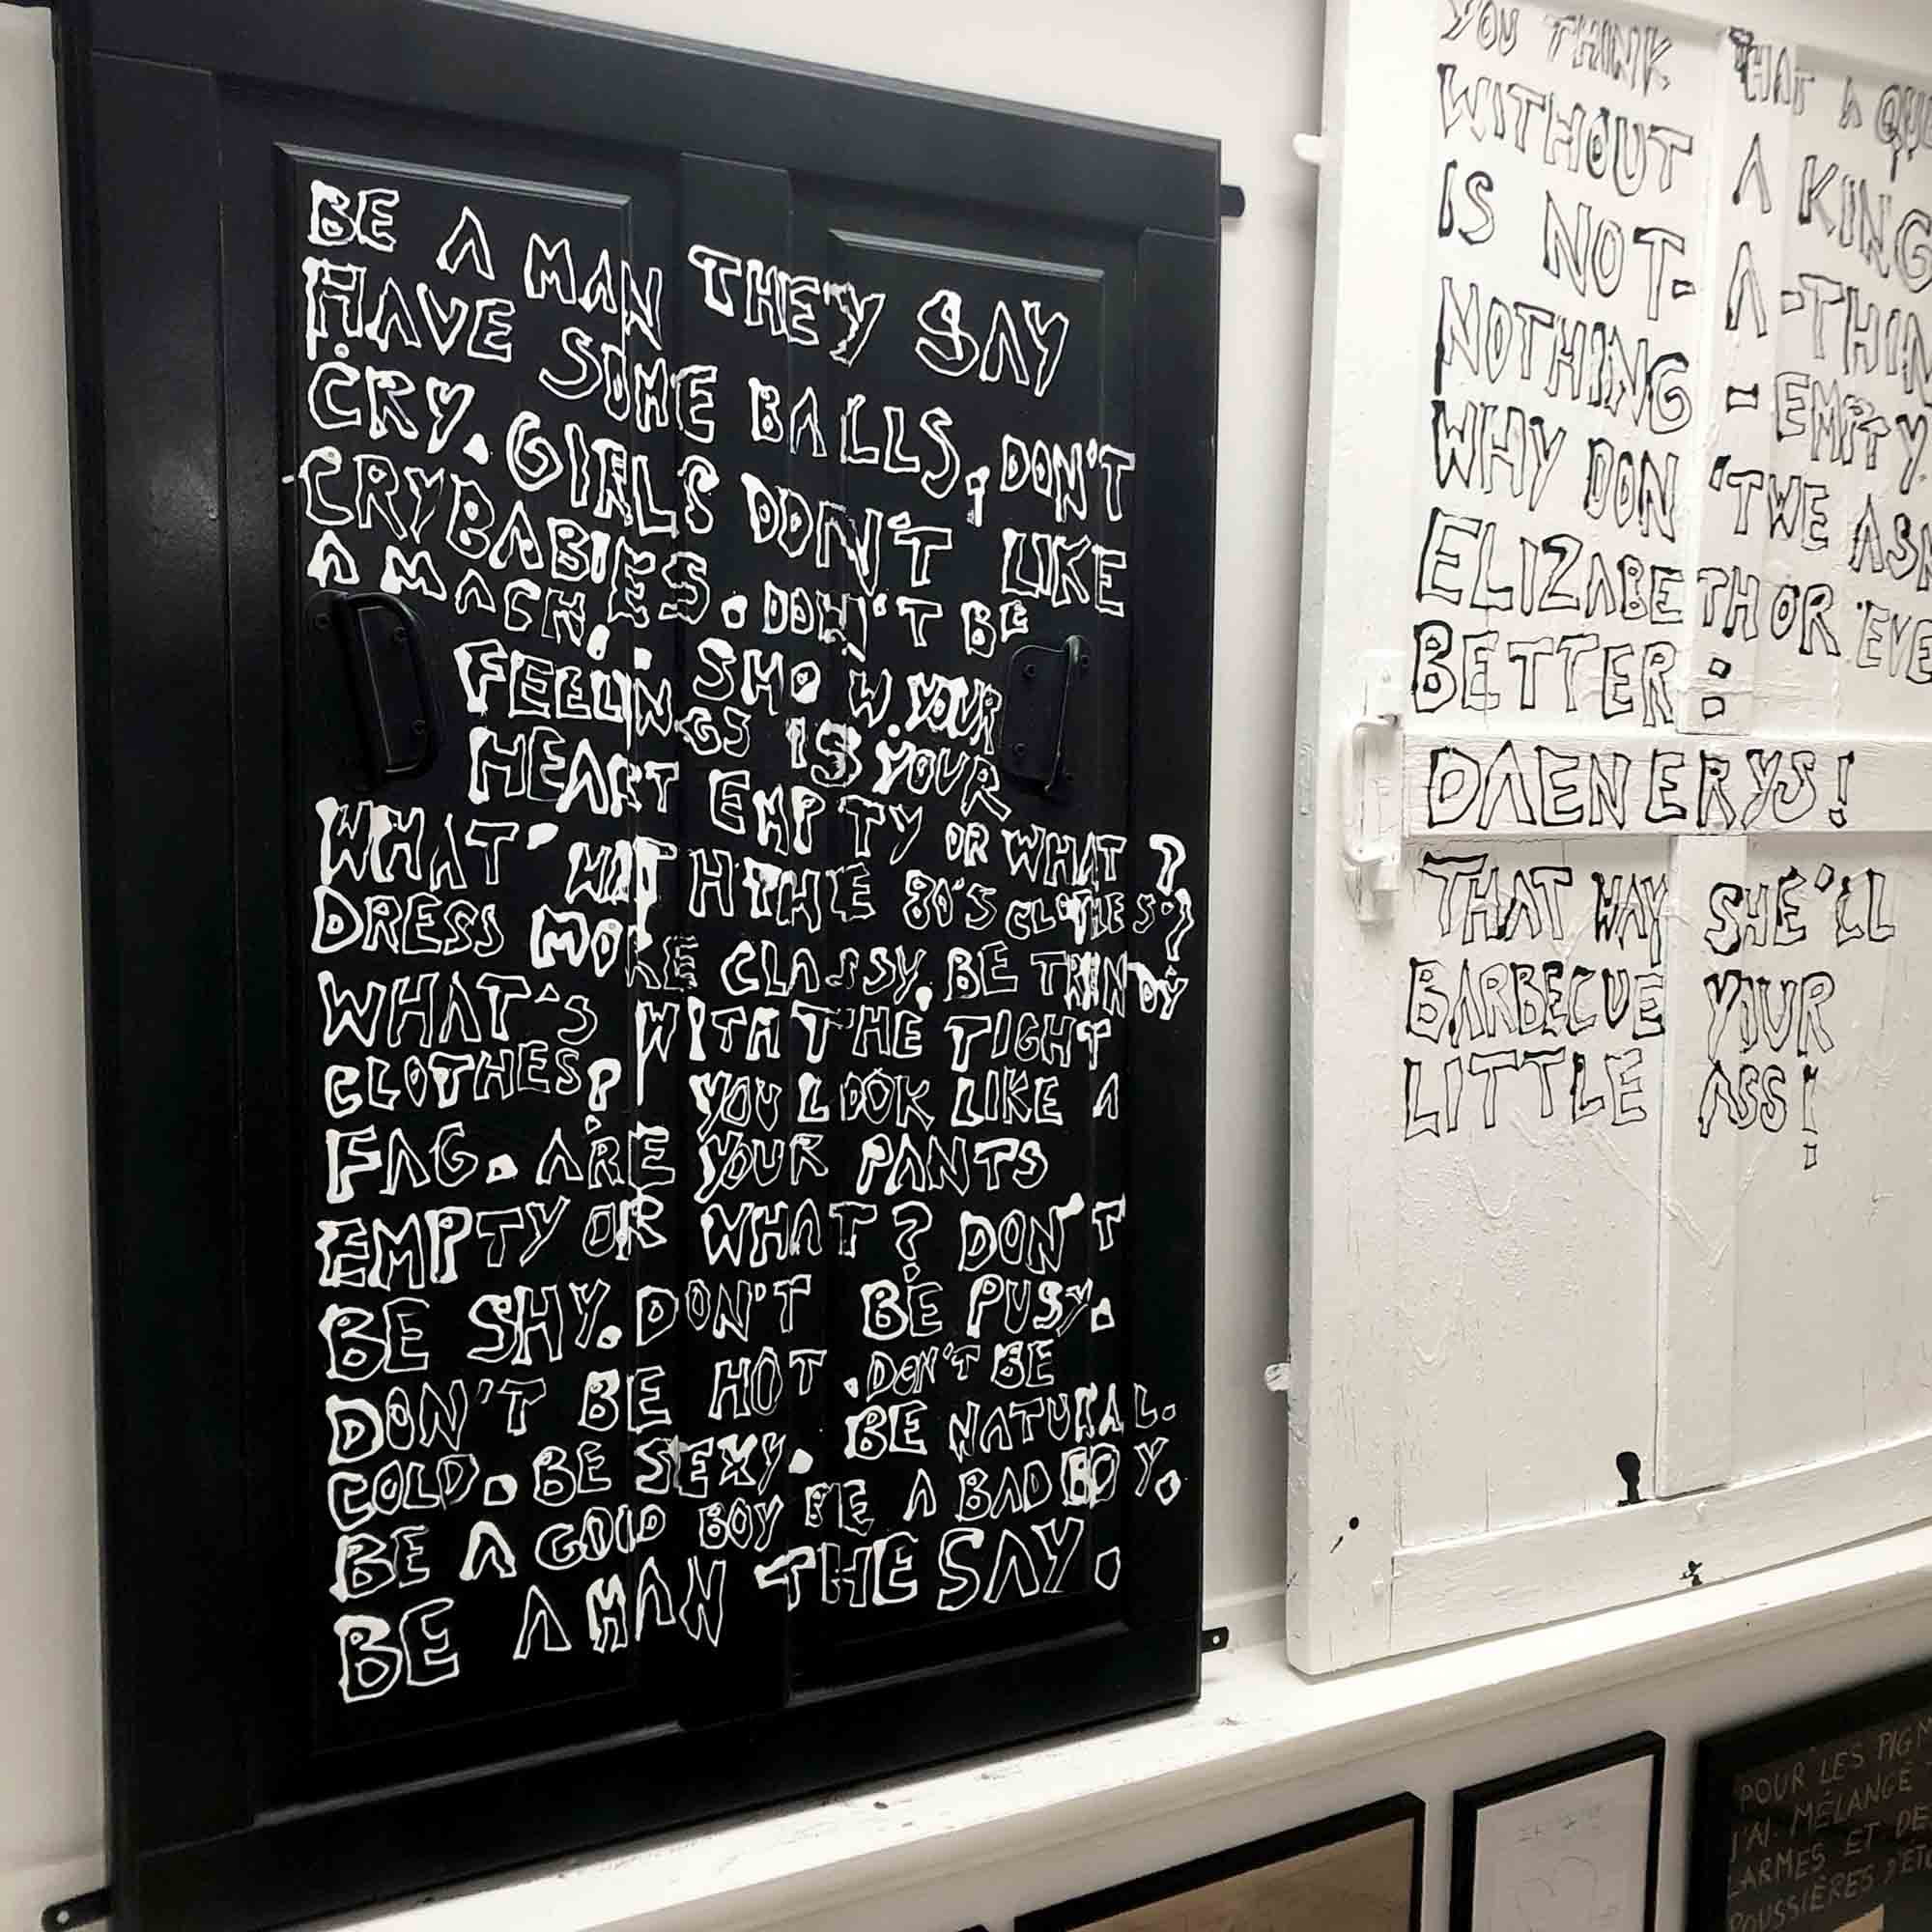 BE A MAN THEY SAY
HAVE SOME BALLS, DON'T
CRY. GIRLS DON'T LIKE
CRYBABIES. DON'T BE
A MACH,. SHOW. YOUR
FEELINGS IS YOUR
HEART EMPTY OR WHAT?
WHAT' WITH THE 80'S CLOTHES?
DRESS MORE CLASSY, BE TRINDY
WHAT'S WITH THE TIGHT
CLOTHES? YOU LOOK LIKE A
FAG. ARE YOUR PANTS
EMPTY OR WHAT? DON'T
BE SHY. DON'T BE PUSY.
DON'T BE HOT. DON'T BE
COLD. BE SEXY. BE NATURAL.
BE A GOOD BOY BE A BAD BOY.
BE A MAN THE SAY.
YOU THINK THAT A QU
WITHOUT A KING
IS NOT- A -THIN
NOTHING - EMPTY.
WHY DON'TWE ASK
ELIZABETH OR EVE
BETTER:
DAENERYS!
THAT WAY SHE'LL
BARBECUE YOUR
LITTLE ASS!
POUR LES PIGM
J'AI MÉLANGÉ
LARMES ET DE
POUSSIÈRES D'ÉTO